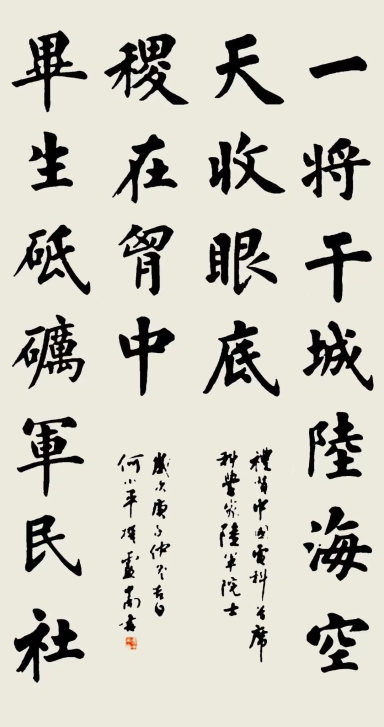 一将干城陸海空
天收眼底
禮贊中国電科首席
科學家陸军院士
畢生砥礪軍民社
稷在胷中
歲次庚子仲冬吉日
何小平撰盧中南書